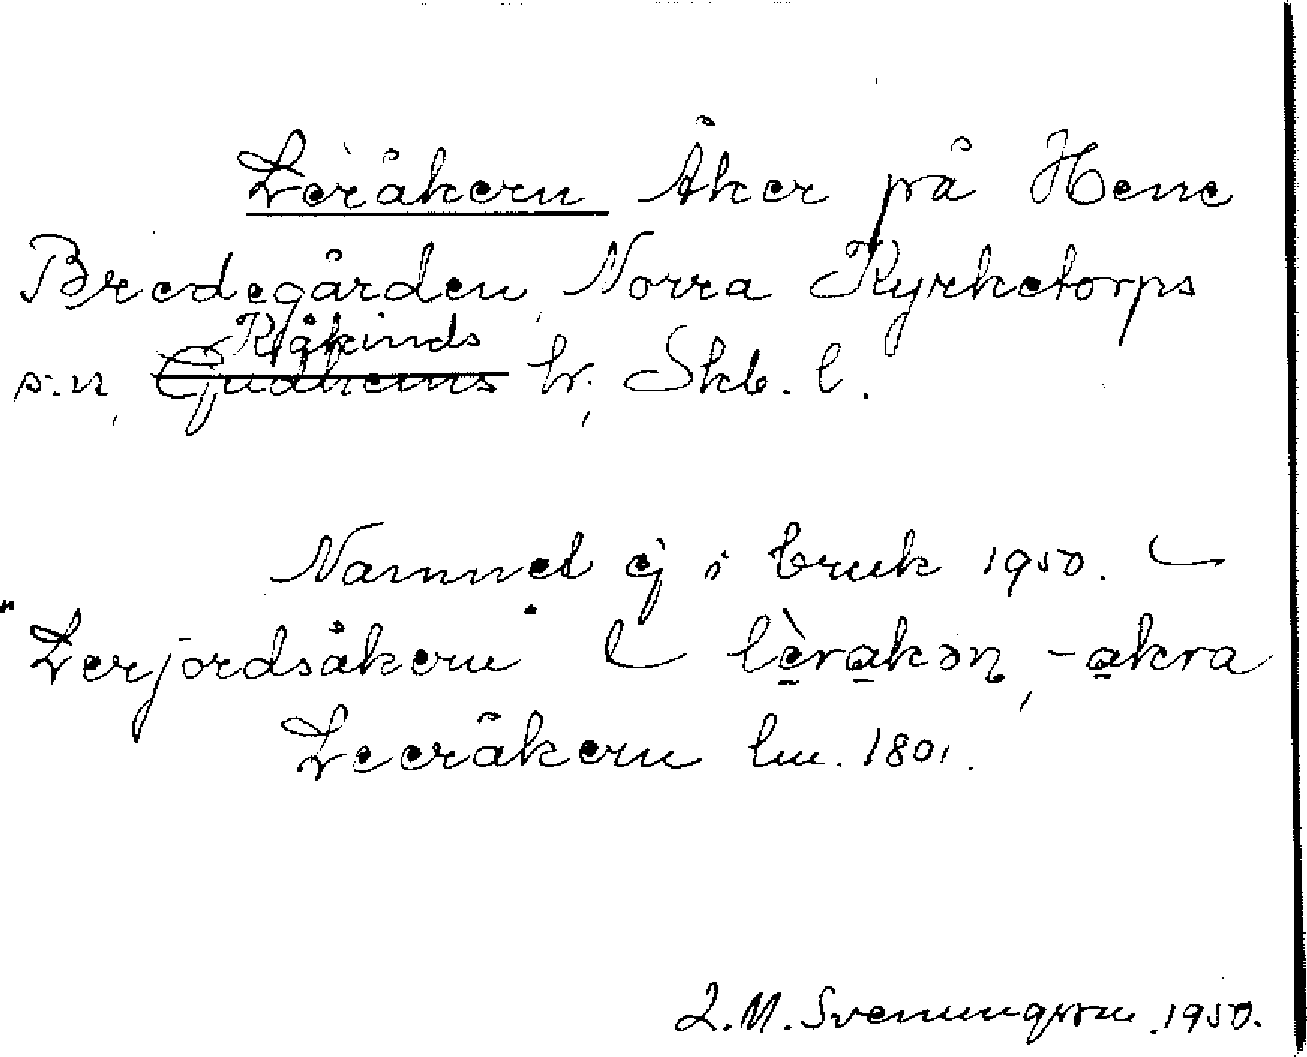 Leråkern Åker på Hene
Bredegården, Norra Kyrketorps
Kåkinds
s:n, Gudhems hr, Skb. l.
Namnet ej i bruk 1950.
"Lerjordsåkern" lèrakən, -akra
Leeråkern lm. 1801.
L. M. Svenungsson 1950.